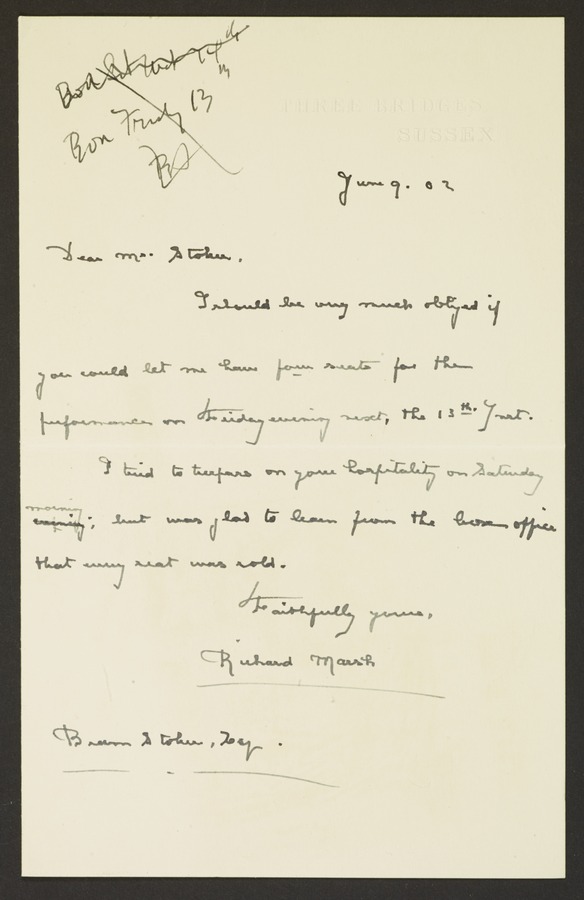 Box Sat 14th
Box Friday 13th
BS
THREE BRIDGES
SUSSEX
June 9. 02
Dear Mr. Stoker,
I should be very much obliged if
you could let me have four seats for the
performance on Friday evening next, the 13th. Inst.
I tried to trespass on your hospitality on Saturday
morning
evening; but was glad to learn from the box office
that every seat was sold.
Faithfully yours,
Richard Marsh
Bram Stoker, Esq.